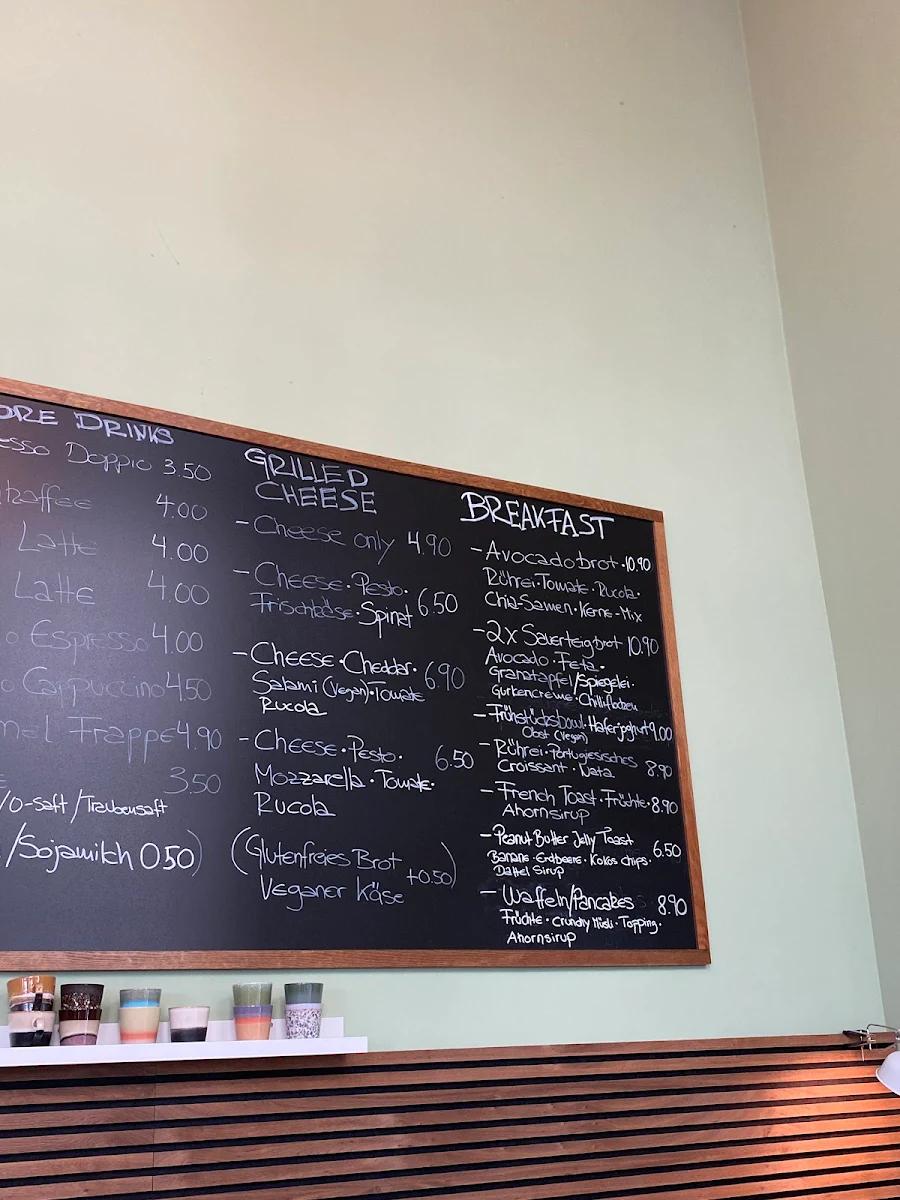 DRINKS
Doppio 3.50
4.00
Latte 4.00
Latte 4.00
Espresso 4.00
Cappuccino 4.50
Frappe 4.90
3.50
/O-Saft/Traubensaft
/Sojamilch 0.50)
GRILLED
CHEESE
- Cheese only 4.90
- Cheese · Pesto ·
Frischkäse · Spinat 6.50
- Cheese · Cheddar · 6.90
Salami (Vegan) · Tomate
Rucola
- Cheese · Pesto · 6.50
Mozzarella · Tomate ·
Rucola
(Glutenfreies Brot
Veganer Käse +0.50)
BREAKFAST
- Avocadobrot · 10.90
Rührei · Tomate · Rucola ·
Chia-Samen · Kerne-Mix
- 2x Sauerteigbrot 10.90
Avocado · Feta ·
Granatapfel/Spiegelei ·
Gurkencreme · Chilliflocken
- Frühstücksbowl · Haferjoghurt 9.00
Obst (Vegan)
- Rührei · Portugiesisches
Croissant · Nata 8.90
- French Toast · Früchte · 8.90
Ahornsirup
- Peanut Butter Jelly Toast
Banane · Erdbeere · Kokos chips · 6.50
Dattel Sirup
- Waffeln/Pancakes 8.90
Früchte · Crunchy Müsli · Topping ·
Ahornsirup